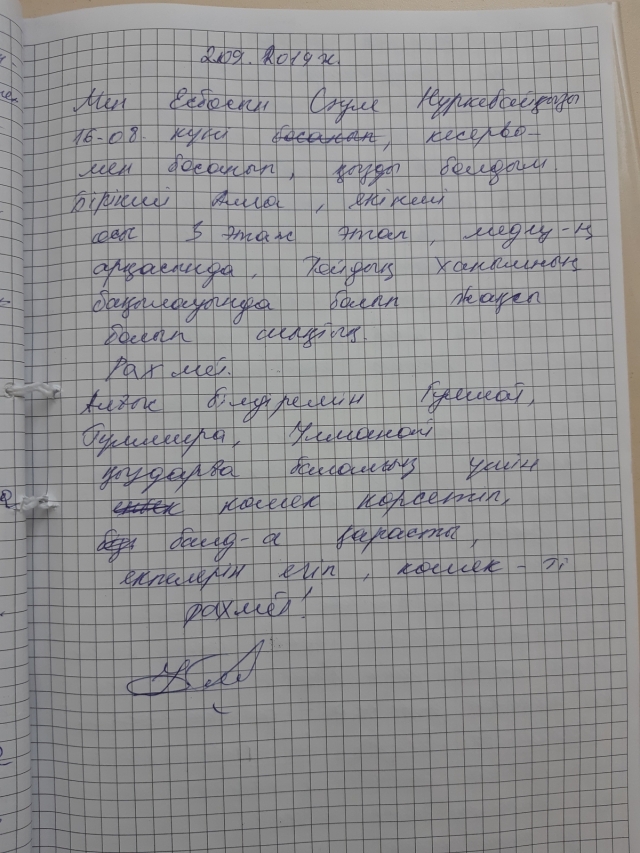 2.09.2019 ж.
Мен Есбосын Сәуле Нуркебайқызы
16-08. күні босанып, кесерво-
мен босанып, қызды болдым.
Бірінші Алла, екінші
осы 3 этаж этап, медиц-ң
арқасында, Ханымның
бақылауында болып жақсы
болып шықтық.
Рахмет.
Алғыс білдіремін Гулшат,
Гулмира, Улманай
қыздарға баламың үшін
көмек корсетип,
балд-а қарасты,
екпелерін егіп, көмек-ті
рахмет!